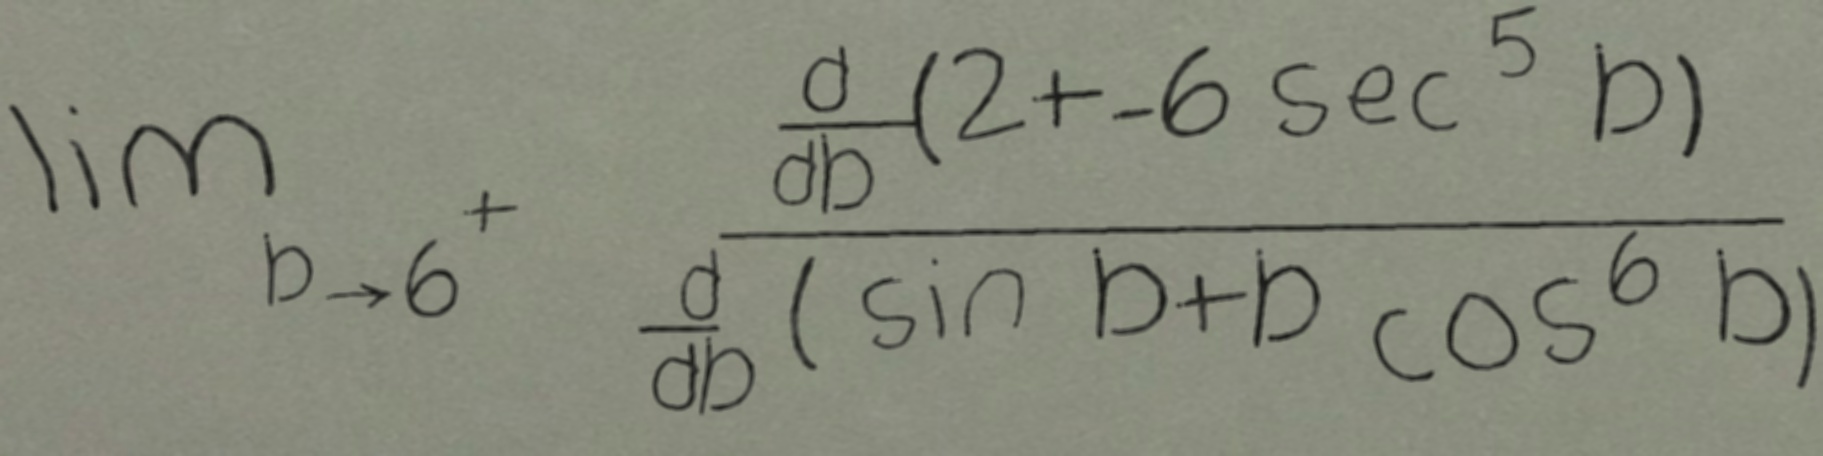 \lim_{b \to 6^+} \frac{\frac{d}{db}(2+-6 \sec^5 b)}{\frac{d}{db}(\sin b+b \cos^6 b)}